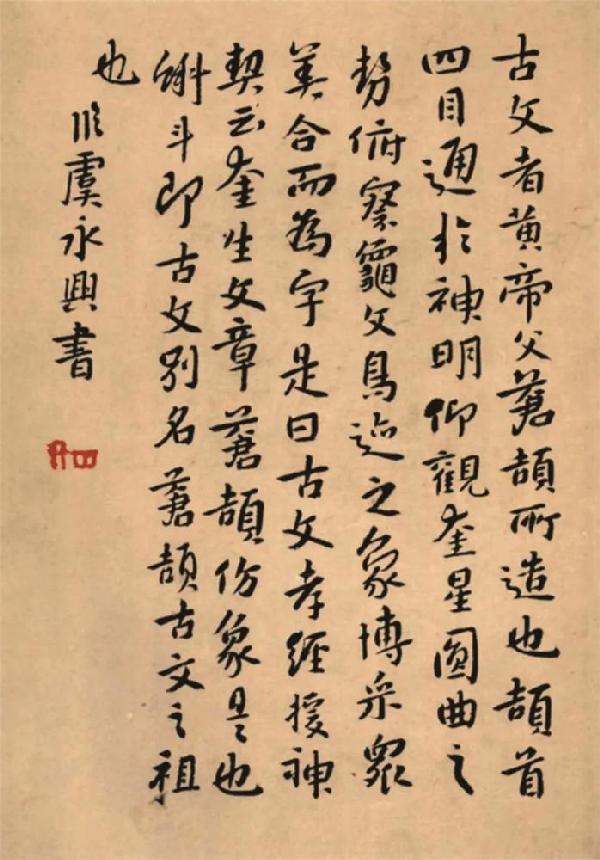 古文者黄帝史蒼頡所造也頡首
四目通於神明仰觀奎星圓曲之
勢俯察龜文鳥迹之象博采衆
美合而為字是曰古文孝經援神
契云奎主文章蒼頡仿象是也
蝌斗即古文别名蒼頡古文之祖
也
临虞永興書